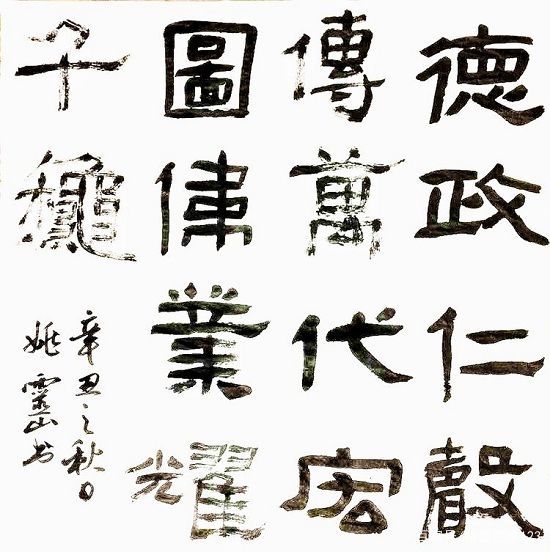 德政仁聲
傳萬代宏
圖偉業耀
千龝
辛丑之秋日
姚靈山书